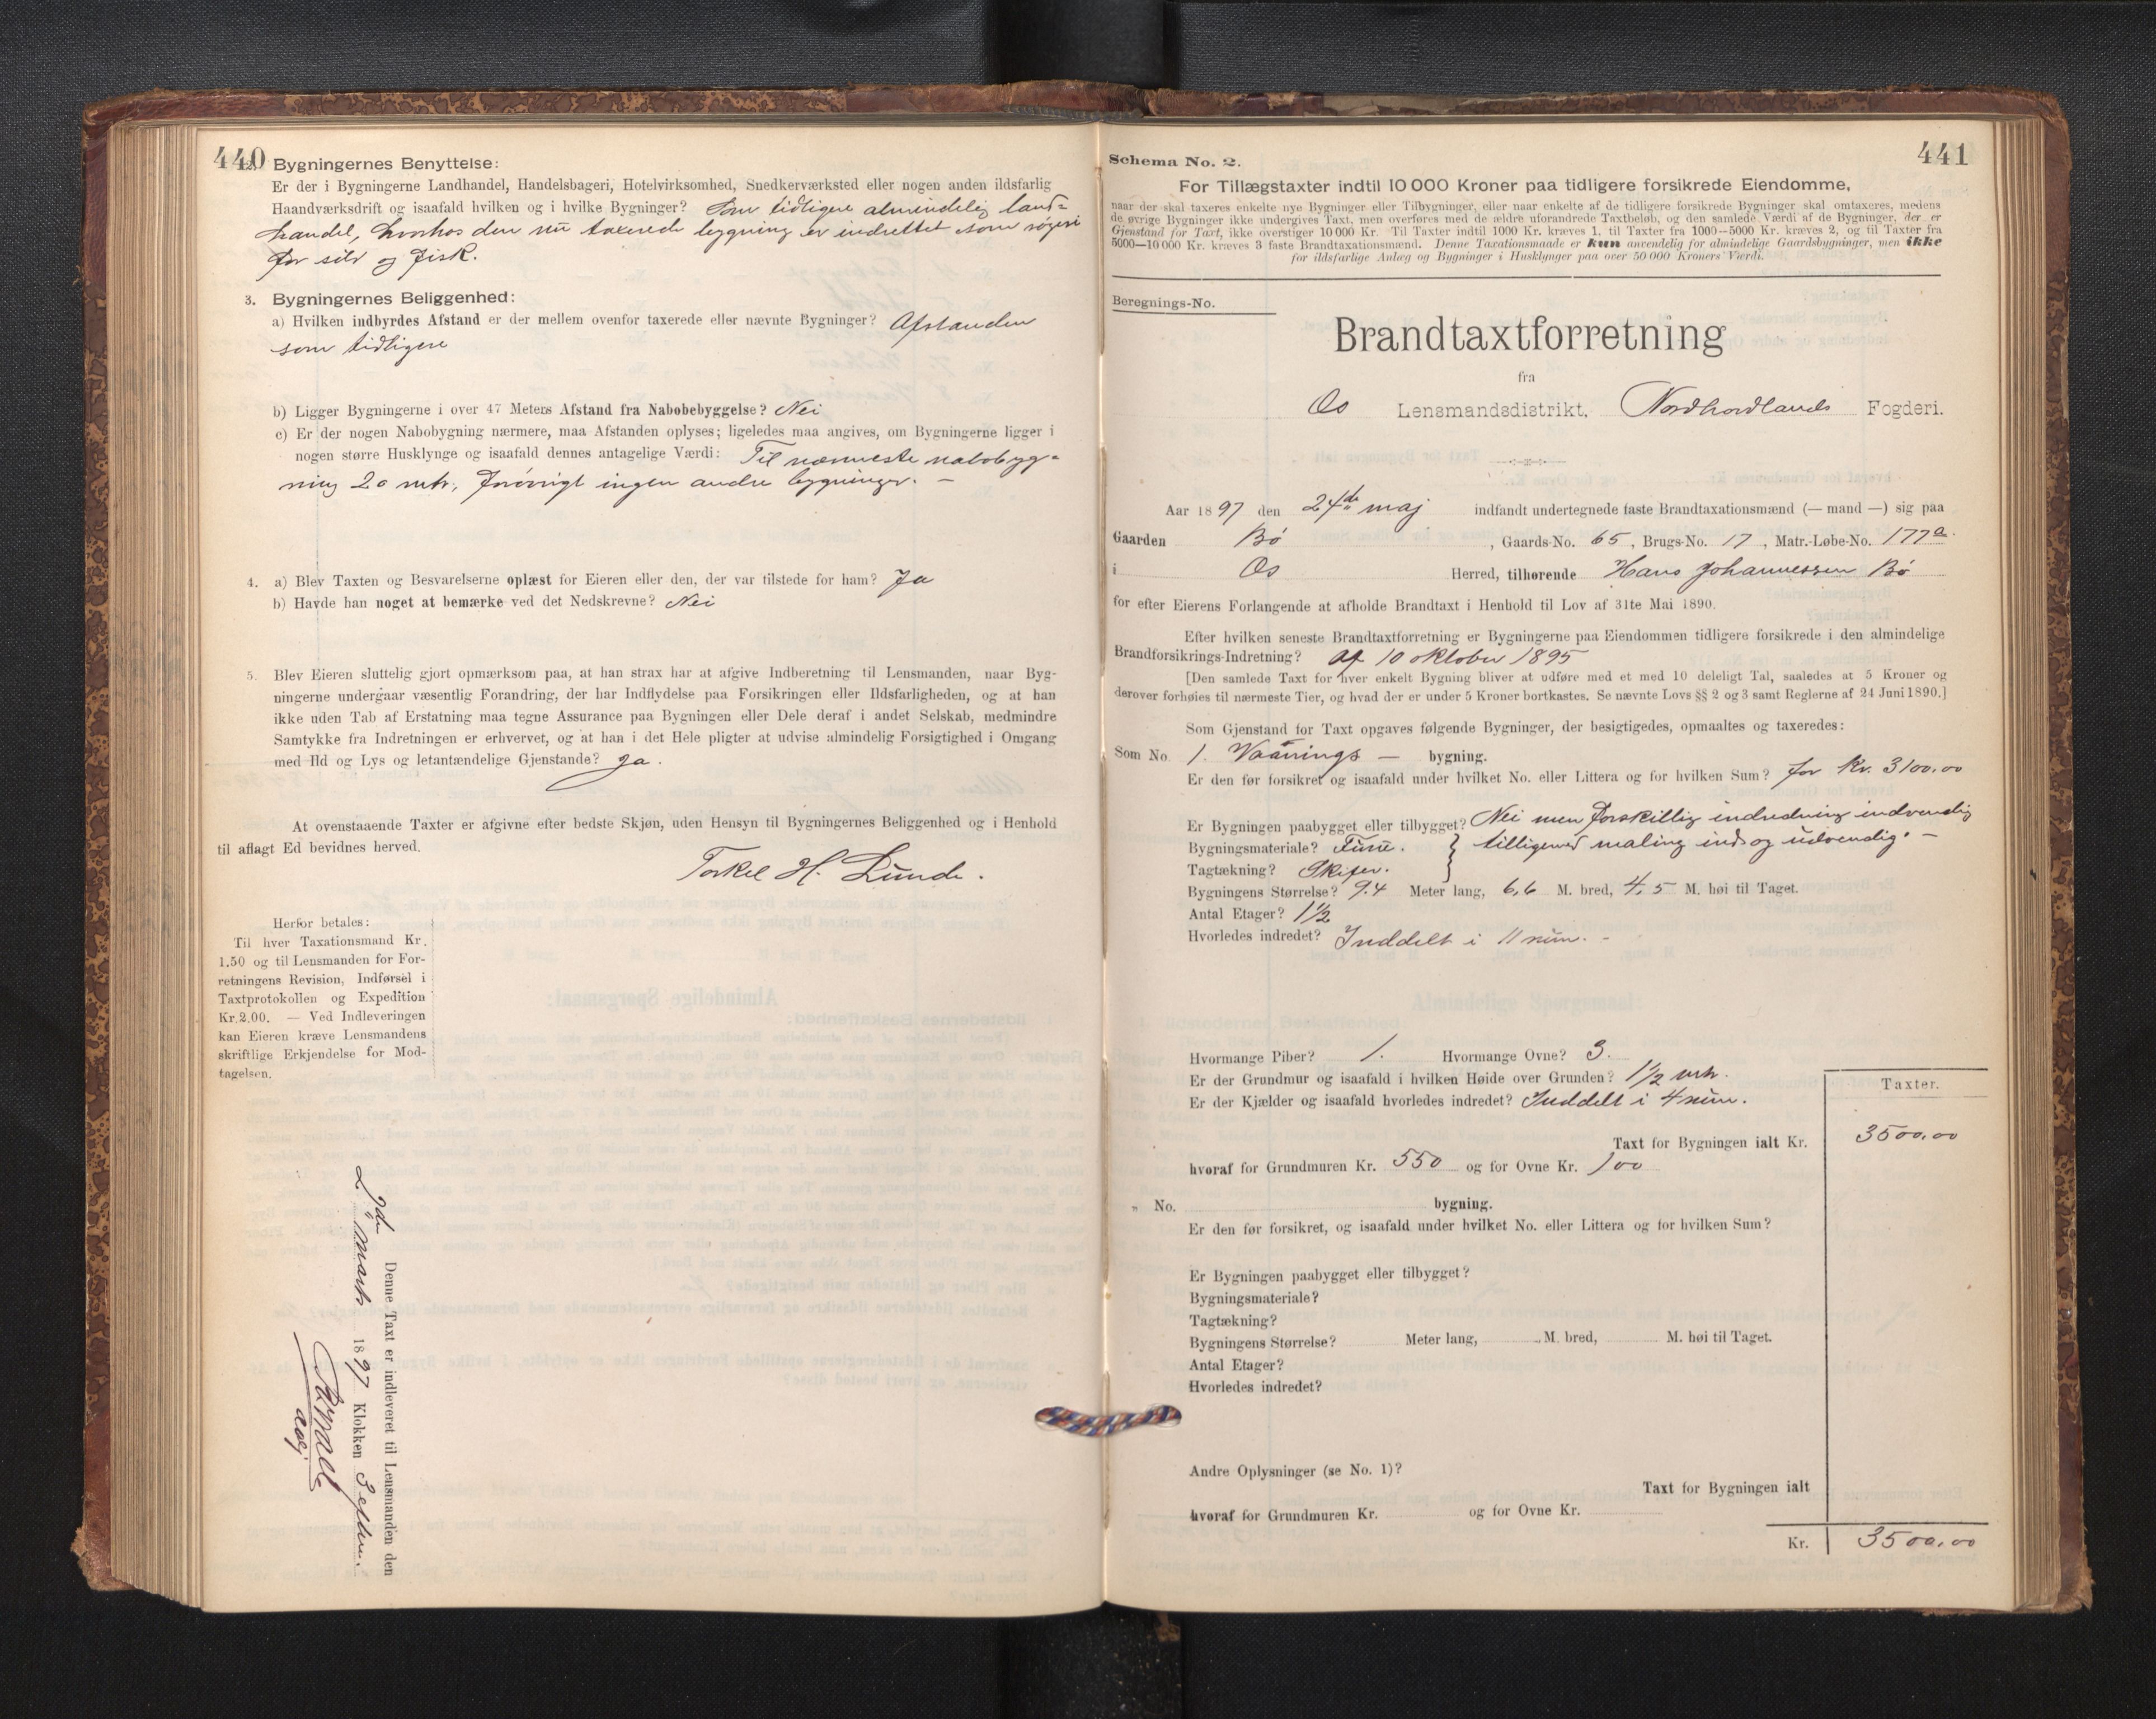 440
2. Bygningernes Benyttelse:
Er der i Bygningerne Landhandel, Handelsbageri, Hotelvirksomhed, Snedkerværksted eller nogen anden ildsfarlig
Haandværksdrift og isaafald hvilken og i hvilke Bygninger? Som tidligere almindelig land-
handel, hvorhos den nu taxerede bygning er indrettet som røgeri
for sild og fisk.
3. Bygningernes Beliggenhed:
a) Hvilken indbyrdes Afstand er der mellem ovenfor taxerede eller nævnte Bygninger? Afstanden
som tidligere
b) Ligger Bygningerne i over 47 Meters Afstand fra Nabobebyggelse? Nei
c) Er der nogen Nabobygning nærmere, maa Afstanden oplyses; ligeledes maa angives, om Bygningerne ligger i
nogen større Husklynge og isaafald dennes antagelige Værdi: Til nærmeste nabobyg-
ning 20 mtr, forøvrigt ingen andre bygninger. -
4. a) Blev Taxten og Besvarelserne oplæst for Eieren eller den, der var tilstede for ham? Ja
b) Havde han noget at bemærke ved det Nedskrevne? Nei
5. Blev Eieren sluttelig gjort opmærksom paa, at han strax har at afgive Indberetning til Lensmanden, naar Byg-
ningerne undergaar væsentlig Forandring, der har Indflydelse paa Forsikringen eller Ildsfarligheden, og at han
ikke uden Tab af Erstatning maa tegne Assurance paa Bygningen eller Dele deraf i andet Selskab, medmindre
Samtykke fra Indretningen er erhvervet, og at han i det Hele pligter at udvise almindelig Forsigtighed i Omgang
med Ild og Lys og letantændelige Gjenstande? Ja.
At ovenstaaende Taxter er afgivne efter bedste Skjøn, uden Hensyn til Bygningernes Beliggenhed og i Henhold
til aflagt Ed bevidnes herved.
Torkel H. Lunde.
Herfor betales:
Til hver Taxationsmand Kr.
1.50 og til Lensmanden for For-
retningens Revision, Indførsel i
Taxtprotokollen og Expedition
Kr. 2.00. — Ved Indleveringen
kan Eieren kræve Lensmandens
skriftlige Erkjendelse for Mod-
tagelsen.
Denne Taxt er indleveret til Lensmanden den
marts 1897 Klokken 3 eftm.
441
Schema No. 2.
For Tillægstaxter indtil 10 000 Kroner paa tidligere forsikrede Eiendomme,
naar der skal taxeres enkelte nye Bygninger eller Tilbygninger, eller naar enkelte af de tidligere forsikrede Bygninger skal omtaxeres, medens
de øvrige Bygninger ikke undergives Taxt, men overføres med de ældre uforandrede Taxtbeløb, og den samlede Værdi af de Bygninger, der er
Gjenstand for Taxt, ikke overstiger 10 000 Kr. Til Taxter indtil 1000 Kr. kræves 1, til Taxter fra 1000—5000 Kr. kræves 2, og til Taxter fra
5000—10 000 Kr. kræves 3 faste Brandtaxationsmænd. Denne Taxationsmaade er kun anvendelig for almindelige Gaardsbygninger, men ikke
for ildsfarlige Anlæg og Bygninger i Husklynger paa over 50 000 Kroners Værdi.
Beregnings-No.
Brandtaxtforretning
fra
Os Lensmandsdistrikt, Nordhordlands Fogderi.
Aar 1897 den 24de maj indfandt undertegnede faste Brandtaxationsmænd (— mand —) sig paa
Gaarden Bø, Gaards-No. 65, Brugs-No. 17, Matr.-Løbe-No. 177a.
i Os Herred, tilhørende Hans Johannessen Bø
for efter Eierens Forlangende at afholde Brandtaxt i Henhold til Lov af 31te Mai 1890.
Efter hvilken seneste Brandtaxtforretning er Bygningerne paa Eiendommen tidligere forsikrede i den almindelige
Brandforsikrings-Indretning? Af 10 oktober 1895
[Den samlede Taxt for hver enkelt Bygning bliver at udføre med et med 10 deleligt Tal, saaledes at 5 Kroner og
derover forhøies til nærmeste Tier, og hvad der er under 5 Kroner bortkastes. Se nævnte Lovs §§ 2 og 3 samt Reglerne af 24 Juni 1890.]
Som Gjenstand for Taxt opgaves følgende Bygninger, der besigtigedes, opmaaltes og taxeredes:
Som No. 1. Vaanings — bygning.
Er den før forsikret og isaafald under hvilket No. eller Littera og for hvilken Sum? for Kr. 3100.00
Er Bygningen paabygget eller tilbygget? Nei men forskillig indredning indvendig
Bygningsmateriale? Furu. } tilligemed maling ind og udvendig. —
Tagtækning? Skifer.
Bygningens Størrelse? 9.4 Meter lang, 6,6 M. bred, 4,5 M. høi til Taget.
Antal Etager? 1½
Hvorledes indredet? Inddelt i 11 rum. -
Hvormange Piber? 1. Hvormange Ovne? 3.
Er der Grundmur og isaafald i hvilken Høide over Grunden? 1½ mtr.
Er der Kjælder og isaafald hvorledes indredet? Inddelt i 4 rum.
Taxter.
Taxt for Bygningen ialt Kr. 3500.00
hvoraf for Grundmuren Kr. 550 og for Ovne Kr. 100
„ No. bygning.
Er den før forsikret, og isaafald under hvilket No. eller Littera og for hvilken Sum?
Er Bygningen paabygget eller tilbygget?
Bygningsmateriale?
Tagtækning?
Bygningens Størrelse? Meter lang, M. bred, M. høi til Taget.
Antal Etager?
Hvorledes indredet?
Andre Oplysninger (se No. 1)?
Taxt for Bygningen ialt
hvoraf for Grundmuren Kr. og for Ovne Kr.
Kr. 3500.00